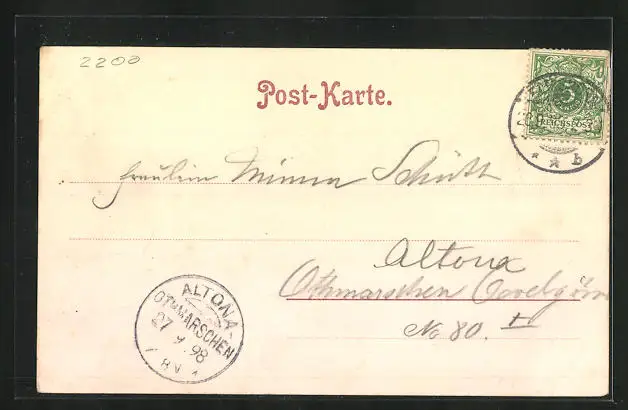 2200
Post-Karte.
5
REICHSPOST
b
Fräulein Minna Schütt
Altona
Othmarschen
No 80. II
ALTONA-
OTHMARSCHEN
27 9.98
8V